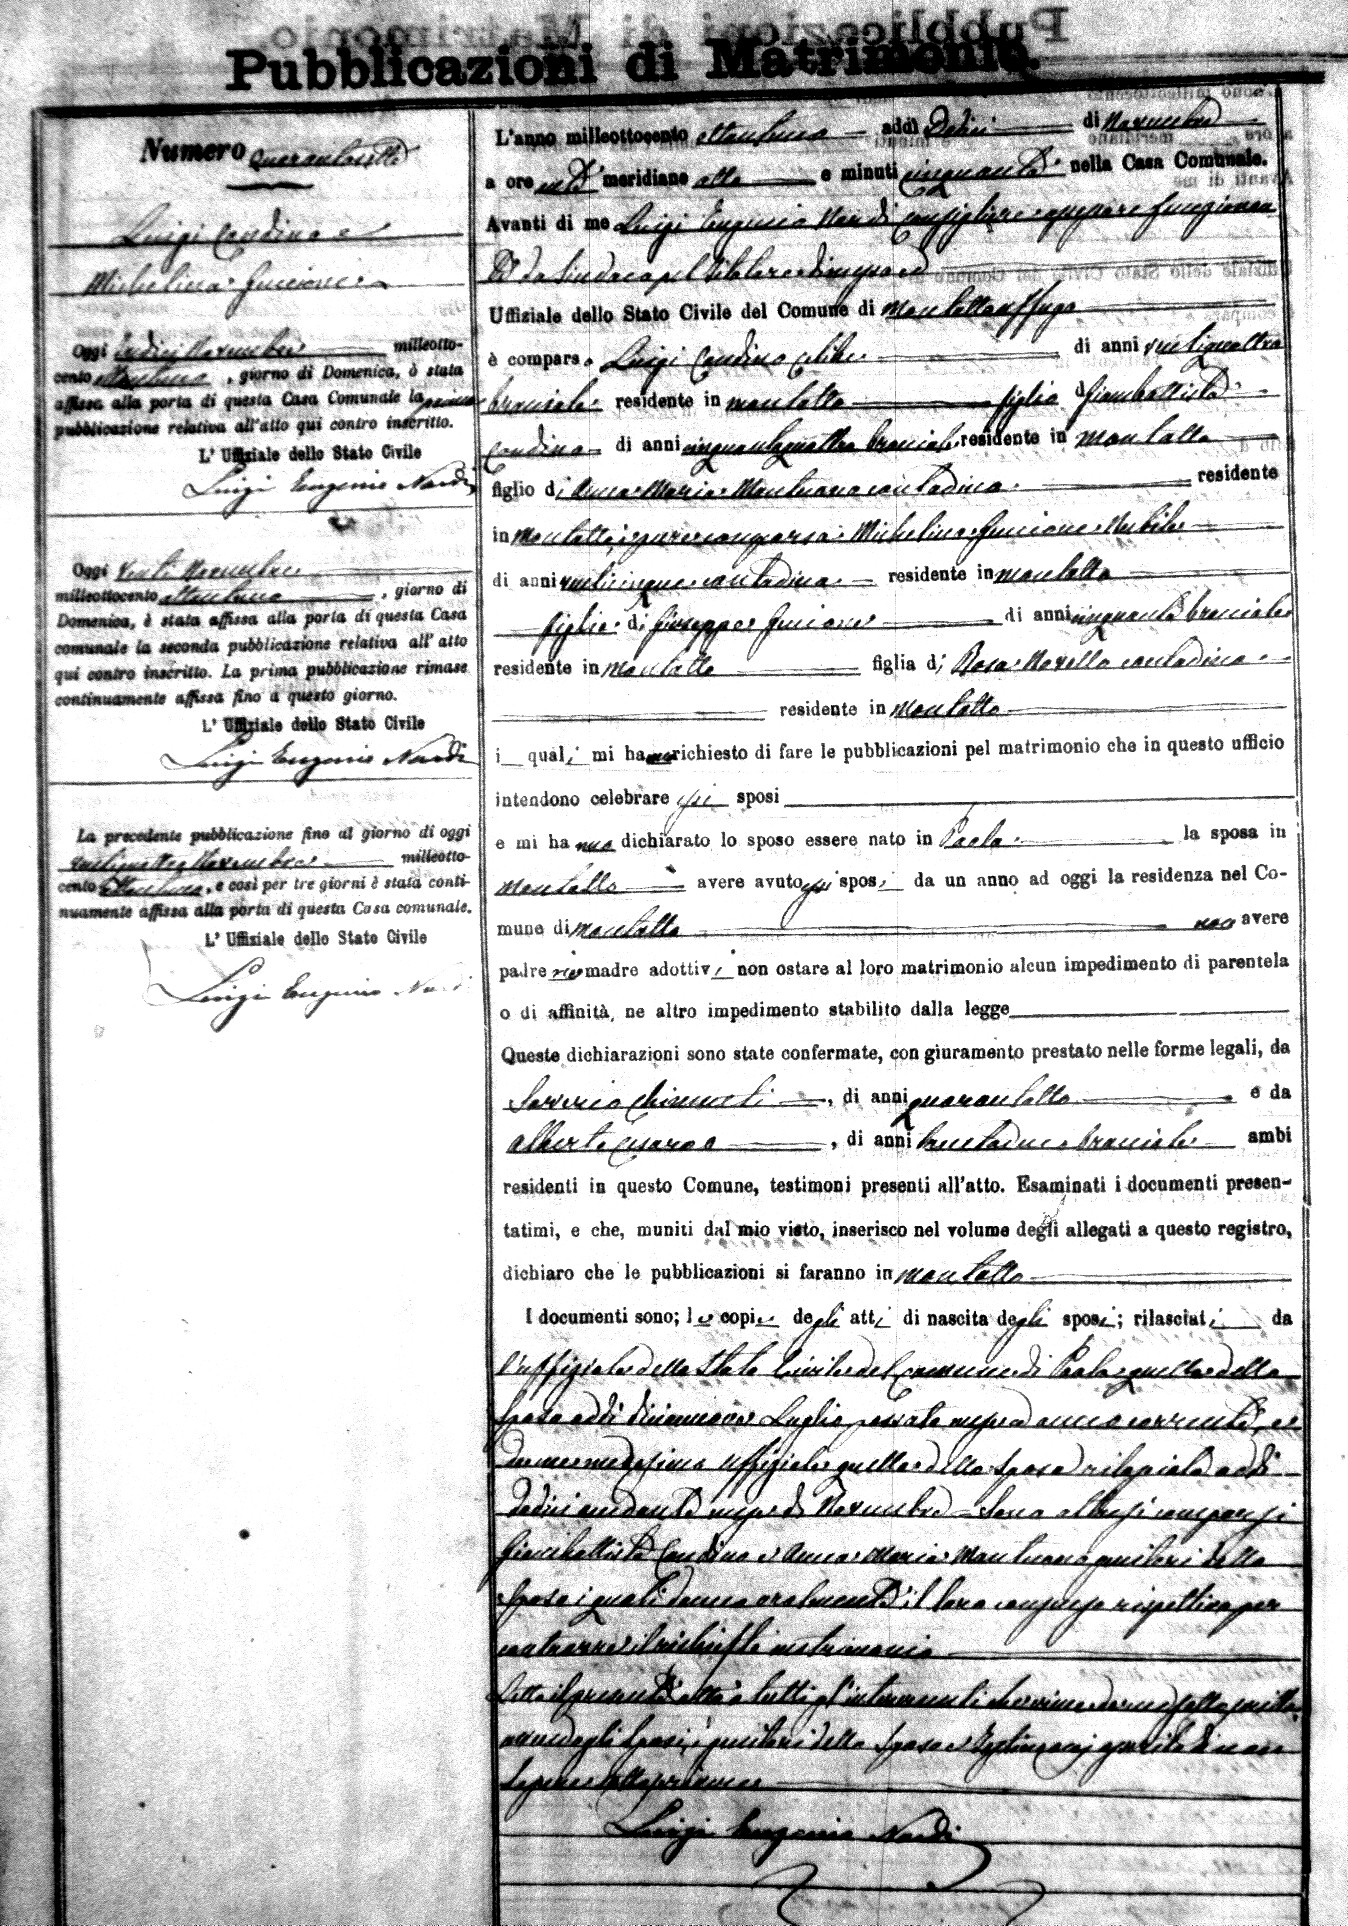 Pubblicazioni di Matrimonio.
Numero Quarantasette
Luigi Condino e
Michelina Guccione
Oggi tredici Novembre milleotto-
cento ottantuno, giorno di Domenica, è stata
affissa alla porta di questa Casa Comunale la prima
pubblicazione relativa all'atto qui contro inscritto.
L'Uffiziale dello Stato Civile
Luigi Eugenio Nardi
Oggi venti Novembre
milleottocento ottantuno, giorno di
Domenica, è stata affissa alla porta di questa Casa
comunale la seconda pubblicazione relativa all'atto
qui contro inscritto. La prima pubblicazione rimase
continuamente affissa fino a questo giorno.
L'Uffiziale dello Stato Civile
Luigi Eugenio Nardi
La precedente pubblicazione fino al giorno di oggi
Novembre milleotto-
cento ottantuno, e così per tre giorni è stata conti-
nuamente affissa alla porta di questa Casa comunale.
L'Uffiziale dello Stato Civile
Luigi Eugenio Nardi
L'anno milleottocento ottantuno addì Dodici di Novembre
a ore meridiane otto e minuti cinquanta nella Casa Comunale.
Avanti di me Luigi Eugenio Nardi Consigliere funzionan
te da Sindaco pel titolare ed
Uffiziale dello Stato Civile del Comune di Montaltouffugo
è comparso Luigi Condino celibe di anni ventiquattro
bracciale residente in Montalto figlio di Giambattista
Condino di anni cinquantaquattro bracciale residente in Montalto
figlio di Anna Maria Mantuano contadina residente
in Montalto; pure comparsa Michelina Guccione Nubile
di anni venticinque contadina residente in Montalto
figlia di Giuseppe Guccione di anni cinquanta bracciale
residente in Montalto figlia di Rosa Novello contadina
residente in Montalto
i quali mi hanno richiesto di fare le pubblicazioni pel matrimonio che in questo ufficio
intendono celebrare essi sposi
e mi hanno dichiarato lo sposo essere nato in Paola la sposa in
Montalto avere avuto essi sposi da un anno ad oggi la residenza nel Co-
mune di Montalto non avere
padre nè madre adottivi non ostare al loro matrimonio alcun impedimento di parentela
o di affinità, ne altro impedimento stabilito dalla legge
Queste dichiarazioni sono state confermate, con giuramento prestato nelle forme legali, da
Saverio Chimenti, di anni quarantotto e da
Alberto Cesareo, di anni trentadue bracciale ambi
residenti in questo Comune, testimoni presenti all'atto. Esaminati i documenti presen-
tatimi, e che, muniti dal mio visto, inserisco nel volume degli allegati a questo registro,
dichiaro che le pubblicazioni si faranno in Montalto
I documenti sono; le copie degli atti di nascita degli sposi; rilasciati da
l'uffiziale dello Stato Civile del Comune di Paola quello dello
sposo addì diciannove Luglio passato anno corrente, e
da me medesimo uffiziale quello della sposa rilasciato addì
dodici andante mese di Novembre. Sono altresì comparsi
Giambattista Condino e Anna Maria Mantuano genitori dello
sposo i quali danno oralmente il loro consenso rispettivo per
contrarre il richiesto matrimonio
Letto il presente atto a tutti gl'intervenuti
degli sposi, genitori dello sposo e
sapere
Luigi Eugenio Nardi